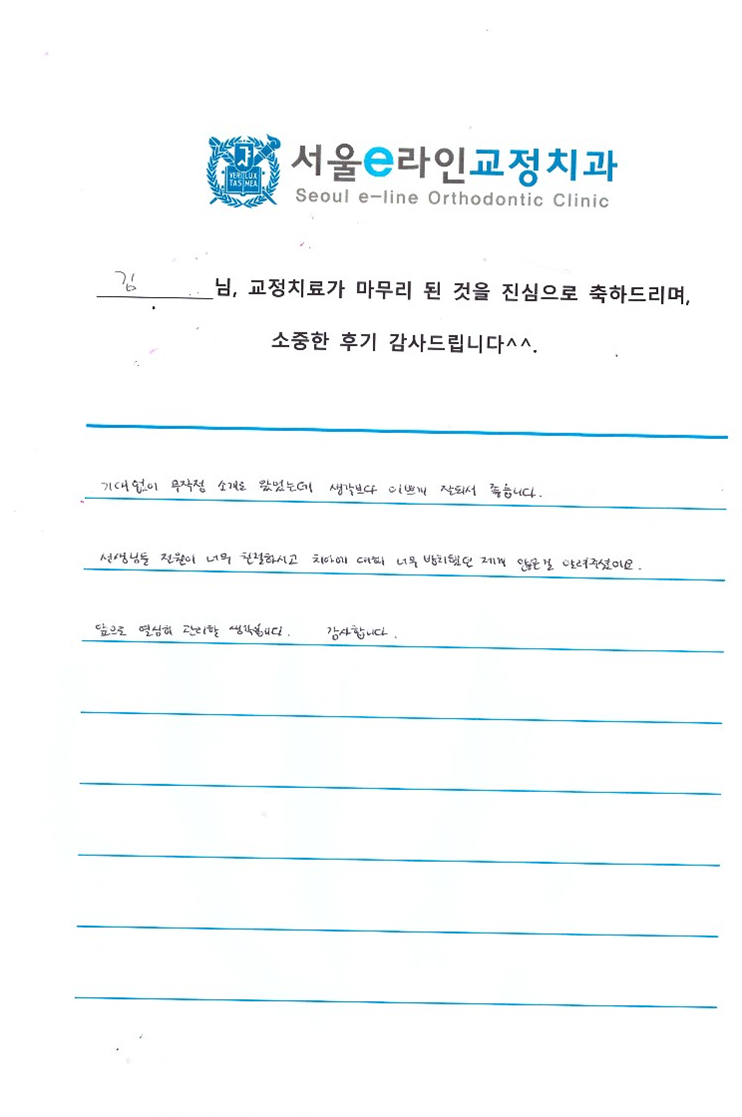 VERI LUX TAS MEA
서울e라인교정치과
Seoul e-line Orthodontic Clinic
김 님, 교정치료가 마무리 된 것을 진심으로 축하드리며,
소중한 후기 감사드립니다^^.
기대없이 무작정 소개로 왔었는데 생각보다 이쁘게 잘되서 좋습니다.
선생님들 전원이 너무 친절하시고 치아에 대해 너무 방치했던 제게 많은걸 알려주셨어요.
앞으로 열심히 관리할 생각입니다. 감사합니다.